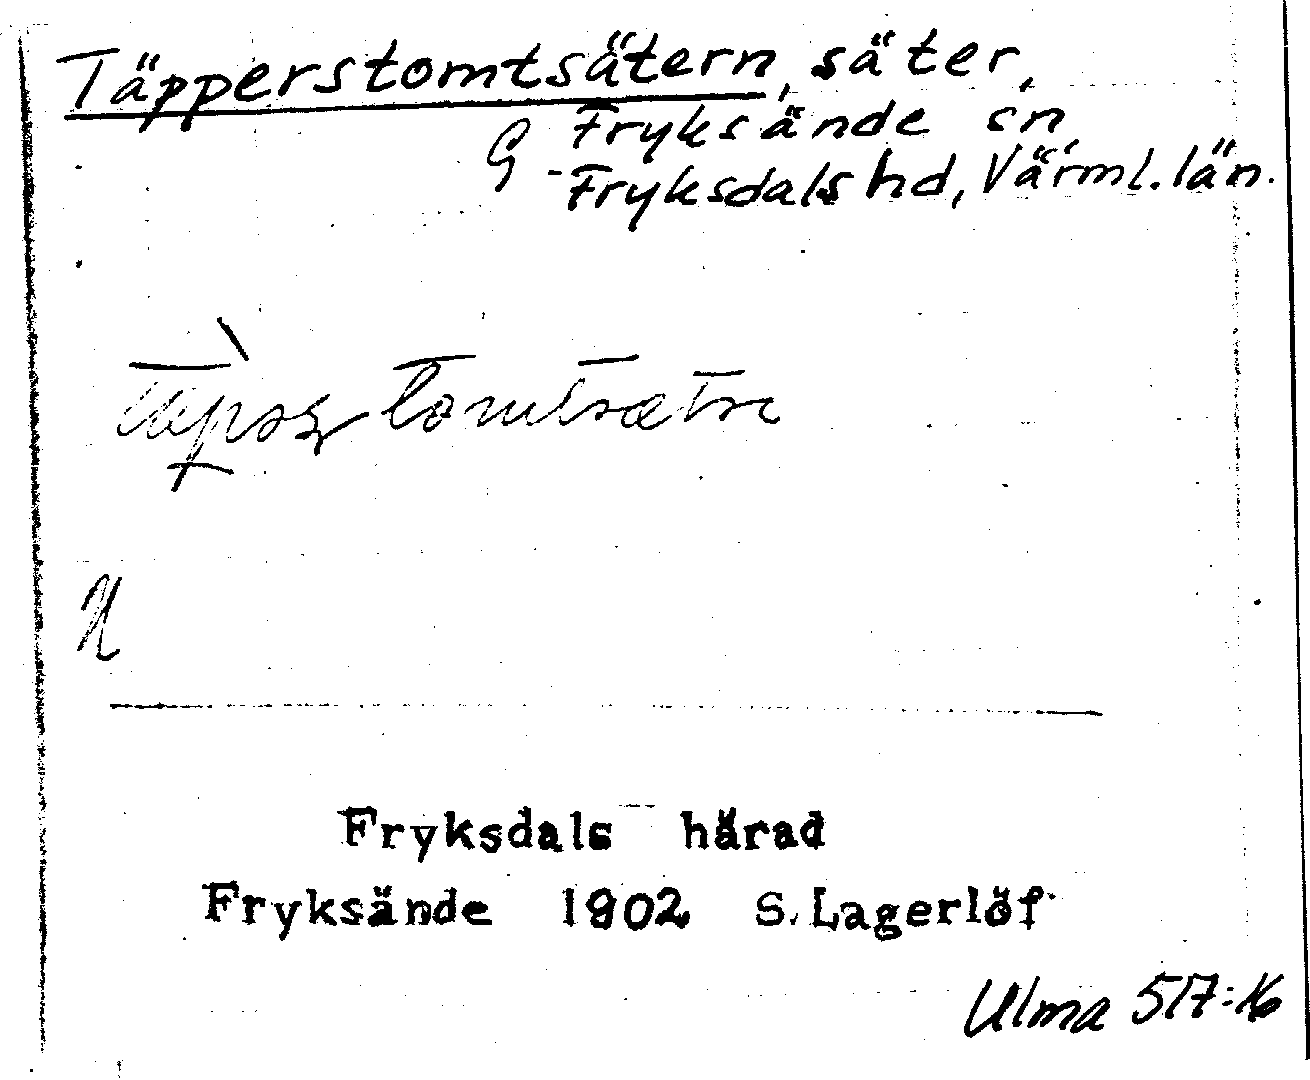 Täpperstomtsätern, säter,
G Fryksände sn
Fryksdals hd, Värml. län.
Fryksdals härad
Fryksände 1902 S. Lagerlöf
Ulma 517:16